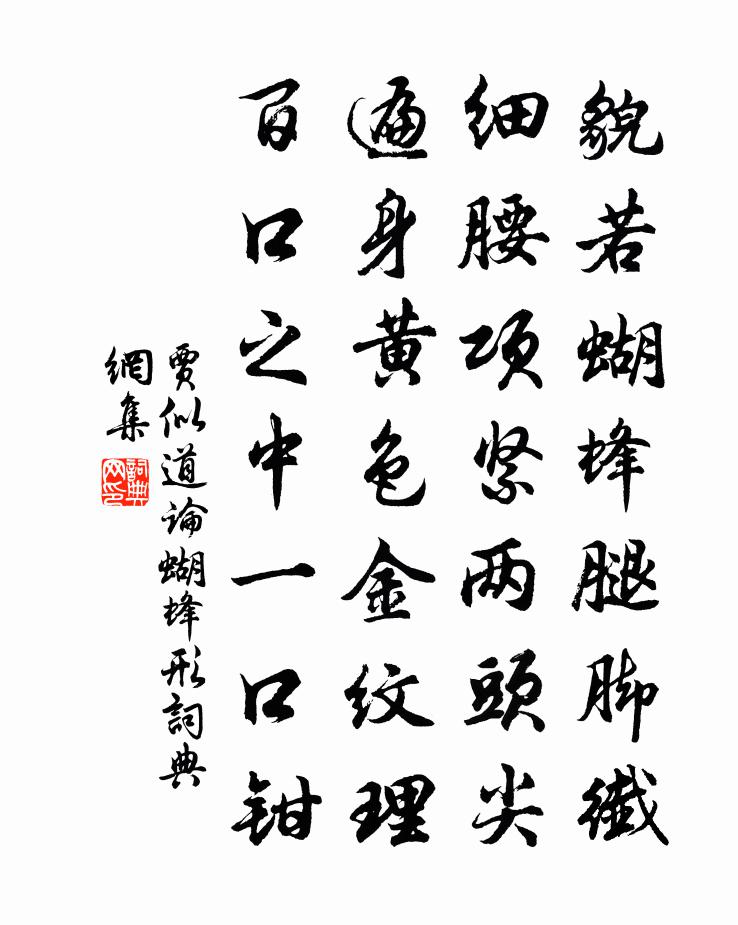 貌若蝴蜂腿脚纖
细腰项紧两頭尖
遍身黄色金纹理
百口之中一口钳
賈似道论蝴蜂形詞典
網集
詞典
网印